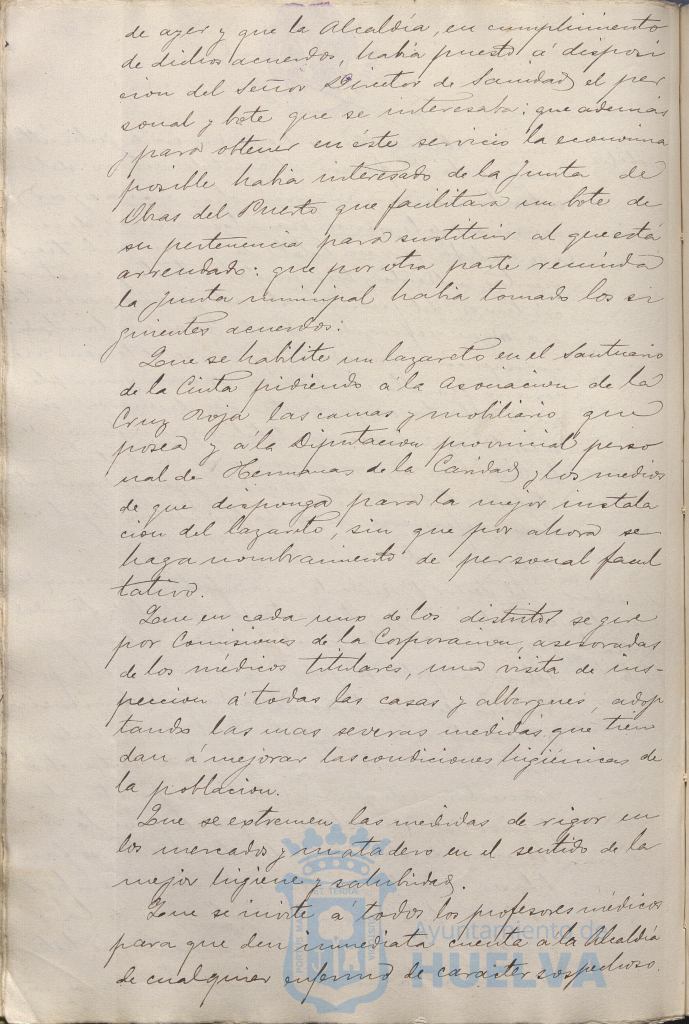 de ayer y que la Alcaldía, en cumplimiento
de dichos acuerdos, había puesto á disposi
cion del Señor Director de Sanidad, el per
sonal y bote que se interesaba: que además
y para obtener en éste servicio la economia
posible habia interesado de la Junta de
Obras del Puerto que facilitara un bote de
su pertenencia para sustituir al que está
arrendado: que por otra parte reunida
la Junta municipal habia tomado los si
guientes acuerdos:
Que se habilite un lazareto en el Santuario
de la Cinta pidiendo á la Asociacion de la
Cruz Roja las camas y mobiliario que
posea y á la Diputacion provincial perso
nal de Hermanas de la Caridad y los medios
de que disponga para la mejor instala
cion del lazareto, sin que por ahora se
haga nombramiento de personal facul
tativo.
Que en cada uno de los distritos se gire
por Comisiones de la Corporacion, asesoradas
de los médicos titulares, una visita de ins-
peccion á todas las casas y albergues, adop
tando las mas severas medidas que tien
dan á mejorar las condiciones higiénicas de
la poblacion.
Que se extremen las medidas de rigor en
los mercados y matadero en el sentido de la
mejor higiene y salubridad.
Que se invite á todos los profesores médicos
para que den inmediata cuenta á la Alcaldía
de cualquier enfermo de caracter sospechoso.
Ayuntamiento de
HUELVA